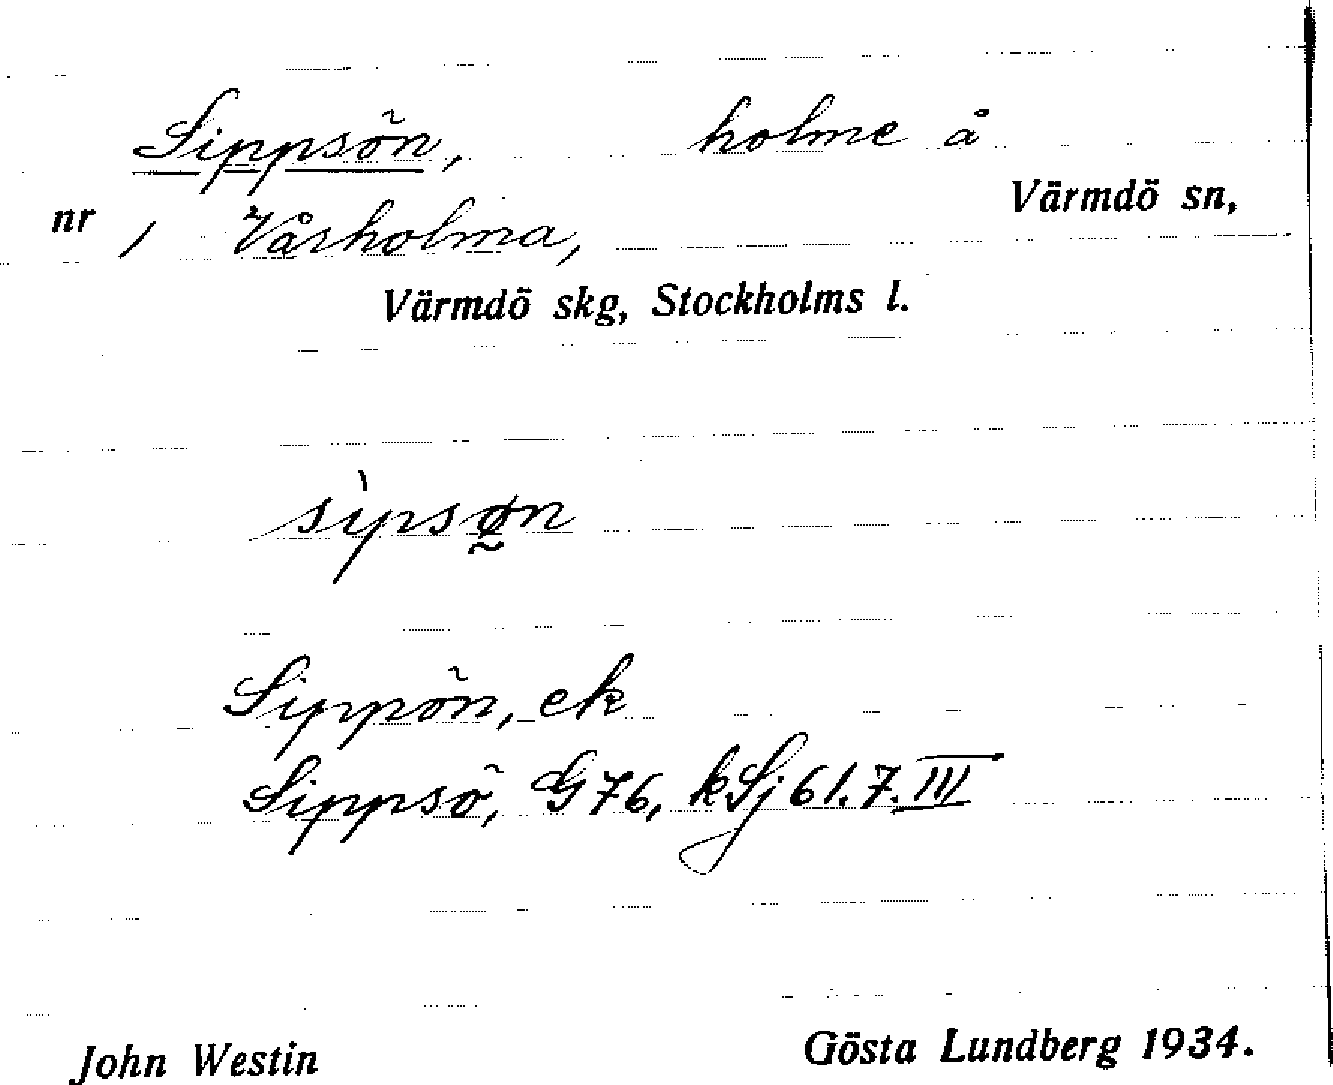 Sippsön, holme å
Värmdö sn,
nr 1 Vårholma,
Värmdö skg, Stockholms l.
sìpsø̰n
Sippön, ek
Sippsö, G 76, kSj 61.7.III
John Westin Gösta Lundberg 1934.